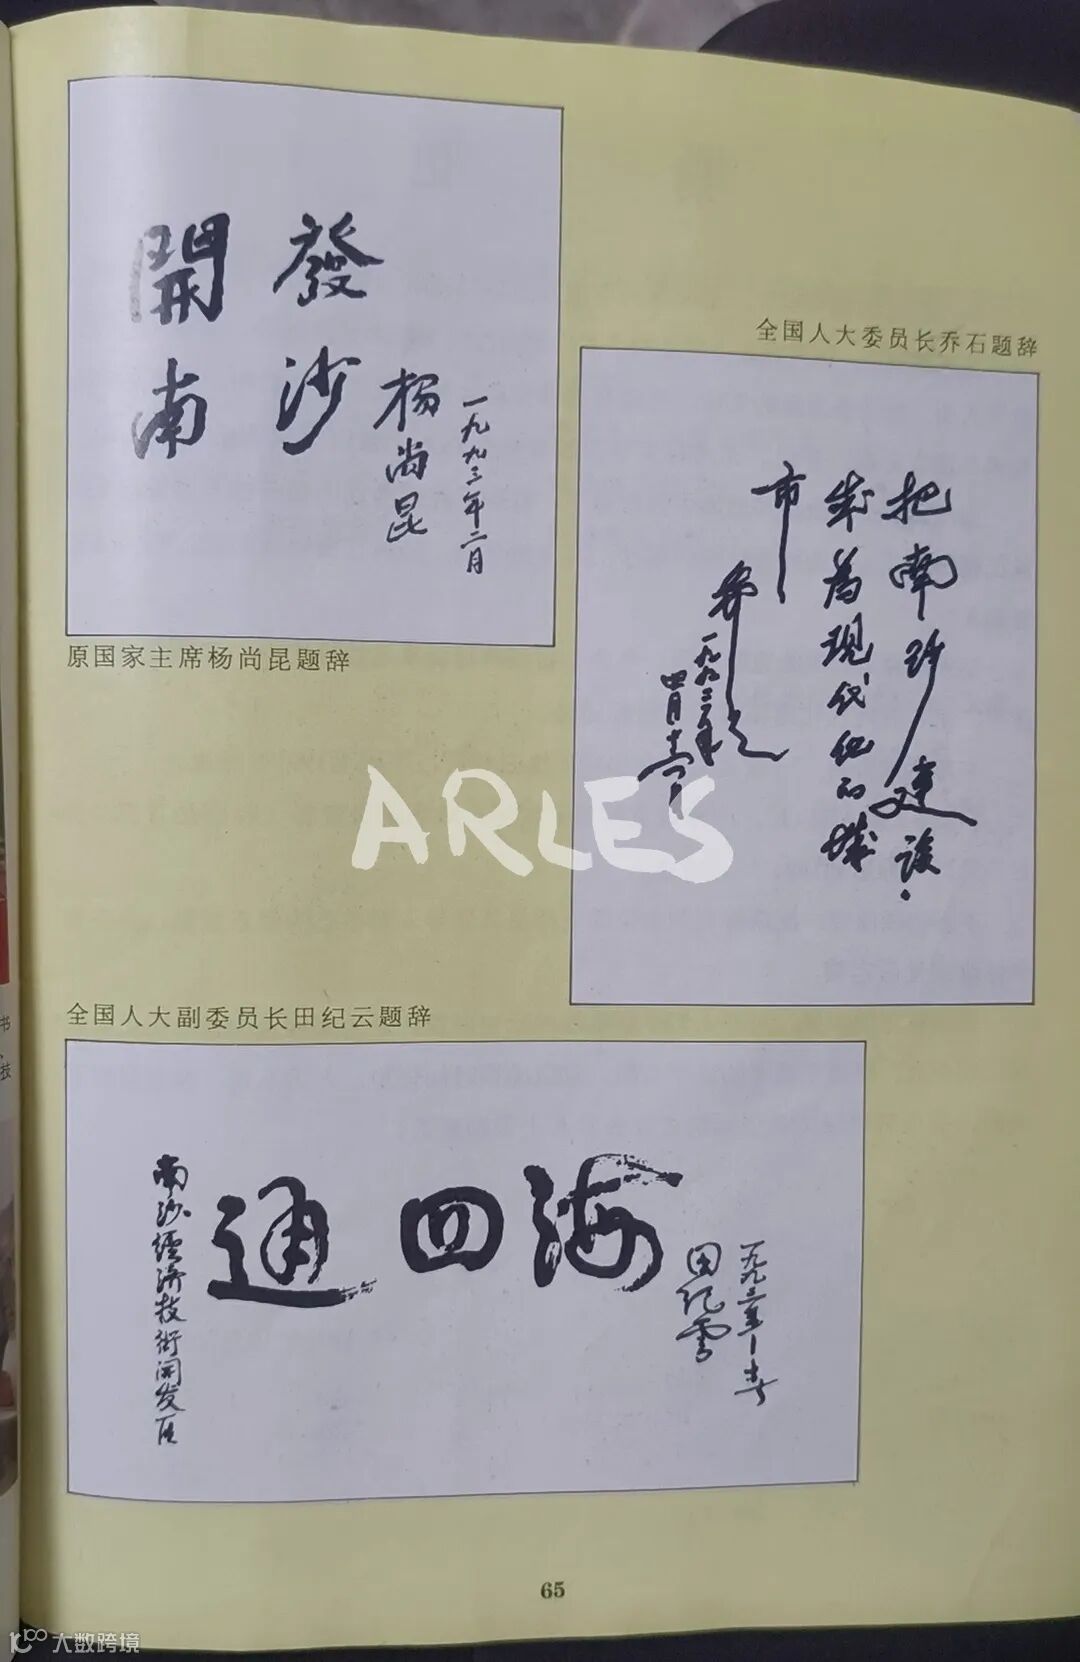 開發
南沙
杨尚昆
一九九三年二月
原国家主席杨尚昆题辞
全国人大委员长乔石题辞
把南沙建设
成为现代化的城
市
乔石
一九九三年
四月十六日
全国人大副委员长田纪云题辞
通四海
南沙經济技術開发区
田纪雲
一九九三年十一月
ARLES
65
书
技
大数跨境